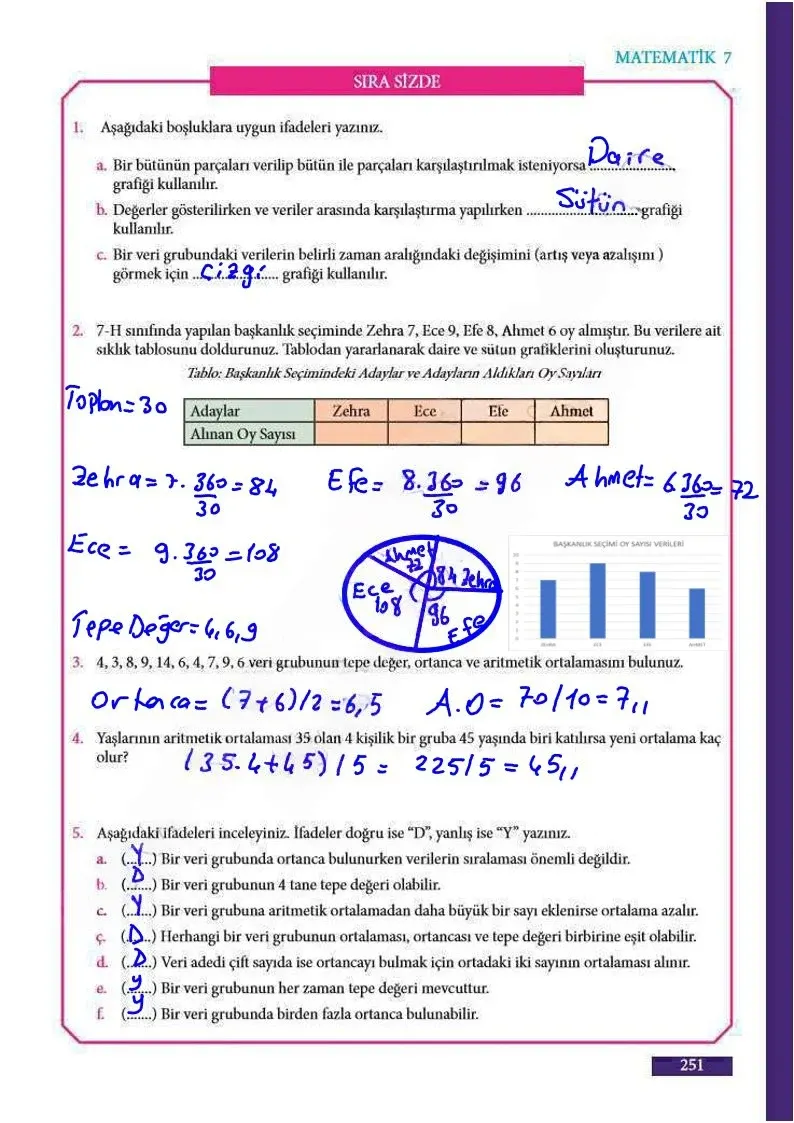 MATEMATİK 7
SIRA SİZDE
1. Aşağıdaki boşluklara uygun ifadeleri yazınız.
a. Bir bütünün parçaları verilip bütün ile parçaları karşılaştırılmak isteniyorsa Daire
grafiği kullanılır.
b. Değerler gösterilirken ve veriler arasında karşılaştırma yapılırken ....Sütun...grafiği
kullanılır.
c. Bir veri grubundaki verilerin belirli zaman aralığındaki değişimini (artış veya azalışını )
görmek için ...Çizgi.... grafiği kullanılır.
2. 7-H sınıfında yapılan başkanlık seçiminde Zehra 7, Ece 9, Efe 8, Ahmet 6 oy almıştır. Bu verilere ait
sıklık tablosunu doldurunuz. Tablodan yararlanarak daire ve sütun grafiklerini oluşturunuz.
Tablo: Başkanlık Seçimindeki Adaylar ve Adayların Aldıkları Oy Sayıları
Toplam=30
Adaylar Zehra Ece Efe Ahmet
Alınan Oy Sayısı
Zehra=7.360/30=84 Efe=8.360/30=96 Ahmet=6.360/30=72
Ece=9.360/30=108
Ahmet 72
84 Zehra
Ece 108
96 Efe
BAŞKANLIK SEÇİMİ OY SAYISI VERİLERİ
10
9
8
7
6
5
4
3
2
1
0
ZEHRA ECE EFE AHMET
Tepe Değer=4,6,9
3. 4, 3, 8, 9, 14, 6, 4, 7, 9, 6 veri grubunun tepe değer, ortanca ve aritmetik ortalamasını bulunuz.
Ortanca=(7+6)/2=6,5 A.O=70/10=7,,
4. Yaşlarının aritmetik ortalaması 35 olan 4 kişilik bir gruba 45 yaşında biri katılırsa yeni ortalama kaç
olur? (35.4+45)/5= 225/5=45,,
5. Aşağıdaki ifadeleri inceleyiniz. İfadeler doğru ise “D”, yanlış ise “Y” yazınız.
a. (...Y...) Bir veri grubunda ortanca bulunurken verilerin sıralaması önemli değildir.
b. (...D...) Bir veri grubunun 4 tane tepe değeri olabilir.
c. (...Y...) Bir veri grubuna aritmetik ortalamadan daha büyük bir sayı eklenirse ortalama azalır.
ç. (...D...) Herhangi bir veri grubunun ortalaması, ortancası ve tepe değeri birbirine eşit olabilir.
d. (...D...) Veri adedi çift sayıda ise ortancayı bulmak için ortadaki iki sayının ortalaması alınır.
e. (...Y...) Bir veri grubunun her zaman tepe değeri mevcuttur.
f. (...Y...) Bir veri grubunda birden fazla ortanca bulunabilir.
251